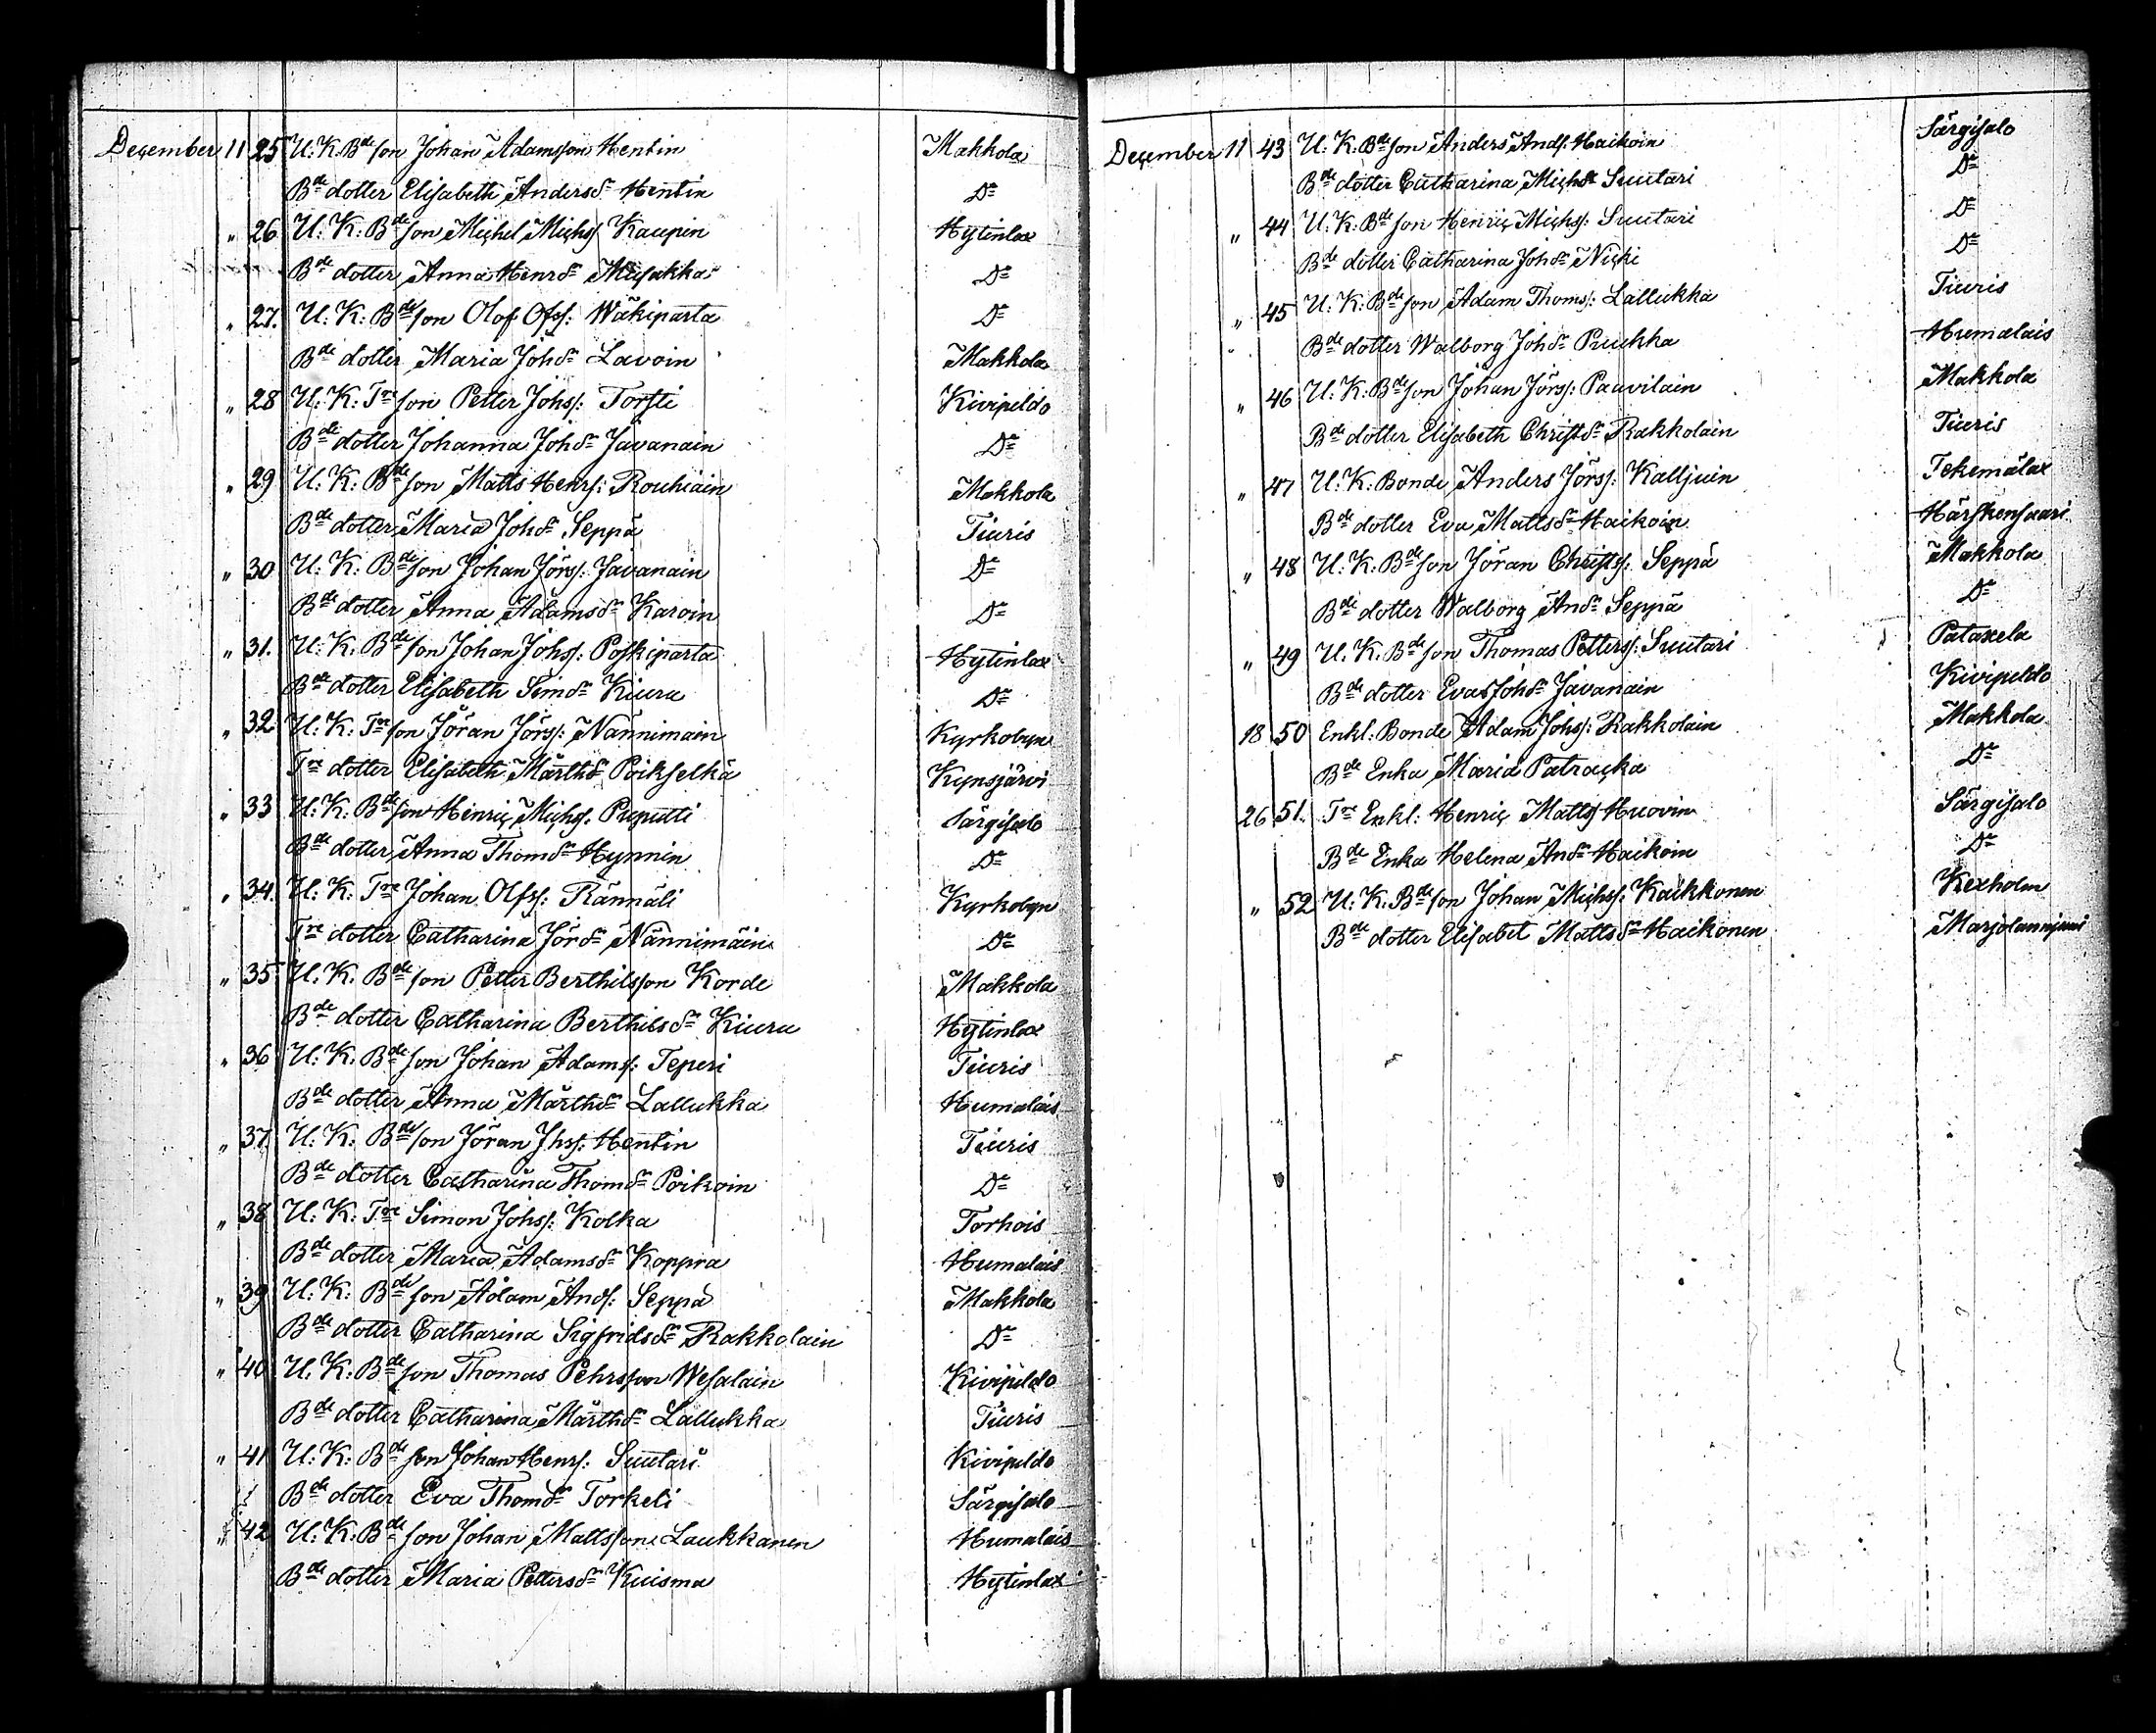 December 11 25 U: K: Bde son Johan Adamsson Hentin Makkola
Bde dotter Elisabeth Andersdr Hentin Do
" 26 U: K: Bde son Michel Michs: Kaupin Hytinlax
Bde dotter Anna Henrdr Musakka Do
" 27. U: K: Bde son Olof Ofss: Wäkiparta Do
Bde dotter Maria Johdr Lavoin Makkola
" 28 U: K: Tre son Petter Johss: Torsti Kivipeldo
Bde dotter Johanna Johdr Javanain Do
" 29 U: K: Bde son Matts Henrs: Rouhiain Makkola
Bde dotter Maria Johdr Seppä Tiuris
" 30 U: K: Bde son Johan Jörss: Javanain Do
Bde dotter Anna Adamsdr Karvin Do
" 31. U: K: Bde son Johan Johss: Poskiparta Hytinlax
Bde dotter Elisabeth Simdr Kiuru Do
" 32 U: K: Tre son Jöran Jörss: Nännimäin Kyrkobyn
Tre dotter Elisabeth Märthdr Poikselkä Kynsjärvi
" 33 U: K: Bde son Henric Michs: Preputti Särgisalo
Bde dotter Anna Thomdr Hynnin Do
" 34. U: K: Tre Johan Olfss: Rännäli Kyrkobyn
Tre dotter Catharina Jördr Nännimäin Do
" 35 U: K: Bde son Petter Berthilsson Korde Makkola
Bde dotter Catharina Berthilsdr Kiuru Hytinlax
" 36 U: K: Bde son Johan Adamss: Teperi Tiuris
Bde dotter Anna Märthdr Lallukka Humalais
" 37 U: K: Bde son Jöran Jhss: Hentin Tiuris
Bde dotter Catharina Thomdr Poikoin Do
" 38 U: K: Tre Simon Johss: Kolka Torhois
Bde dotter Maria Adamsdr Koppra Humalais
" 39 U: K: Bde son Adam Ands: Seppä Makkola
Bde dotter Catharina Sigfridsdr Rakkolain Do
" 40 U: K: Bde son Thomas Pehrsson Wesalain Kivipeldo
Bde dotter Catharina Märthdr Lallukka Tiuris
" 41 U: K: Bde son Johan Henrs: Suutari Kivipeldo
Bde dotter Eva Thomdr Torkeli Särgisalo
" 42 U: K: Bde son Johan Mattsson Laukkanen Humalais
Bde dotter Maria Pettersdr Kuisma Hytinlax
December 11 43 U: K: Bde son Anders Ands: Haikoin Särgisalo
Bde dotter Catharina Michdr Suutari Do
" 44 U: K: Bde son Henric Michs: Suutari Do
Bde dotter Catharina Johdr Nicki Do
" 45 U: K: Bde son Adam Thoms: Lallukka Tiuris
Bde dotter Walborg Johdr Puukka Humalais
" 46 U: K: Bde son Johan Jörss: Paavilain Makkola
Bde dotter Elisabeth Christdr Rakkolain Tiuris
" 47 U: K: Bonde Anders Jörss: Kalljuin Tekemälax
Bde dotter Eva Mattsdr Haikoin Härskensaari
" 48 U: K: Bde son Jöran Christss: Seppä Makkola
Bde dotter Walborg Andr Seppä Do
" 49 U: K: Bde son Thomas Petterss: Suutari Pataxela
Bde dotter Eva Johdr Javanain Kivipeldo
18 50 Enkl: Bonde Adam Johss: Rakkolain Makkola
Bde Enka Maria Patracka Do
26 51. Tre Enkl: Henric Matts: Huovin Särgisalo
Bde Enka Helena Andr Haikoin Do
" 52 U: K: Bde son Johan Michss: Kaikkonen Kexholm
Bde dotter Elisabet Mattsdr Haikonen